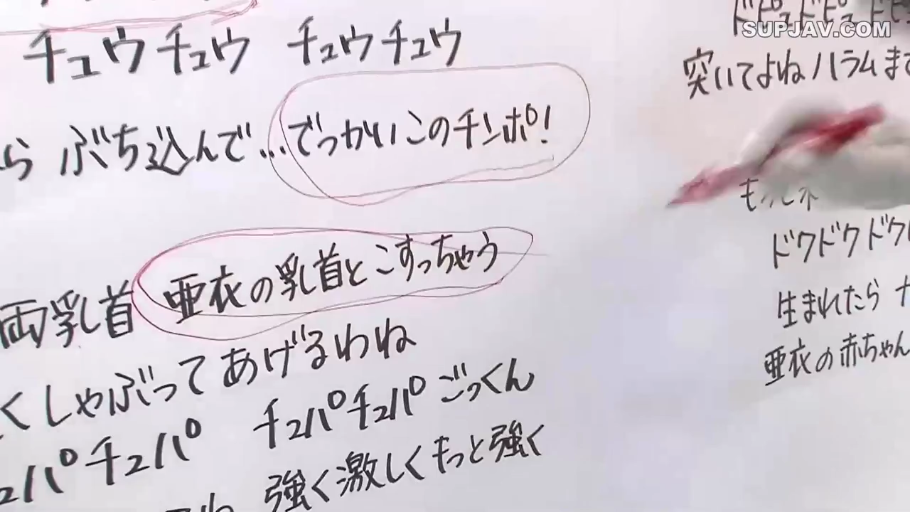 チュウチュウ チュウチュウ
ら ぶち込んで…でっかいこのチンポ!
両乳首 亜衣の乳首とこすっちゃう
くしゃぶってあげるわね
チュパ チュパチュパ ごっくん
強く激しくもっと強く
SUPJAV.COM
突いてよねハラムまで
ドクドクドク
生まれたら
亜衣の赤ちゃん